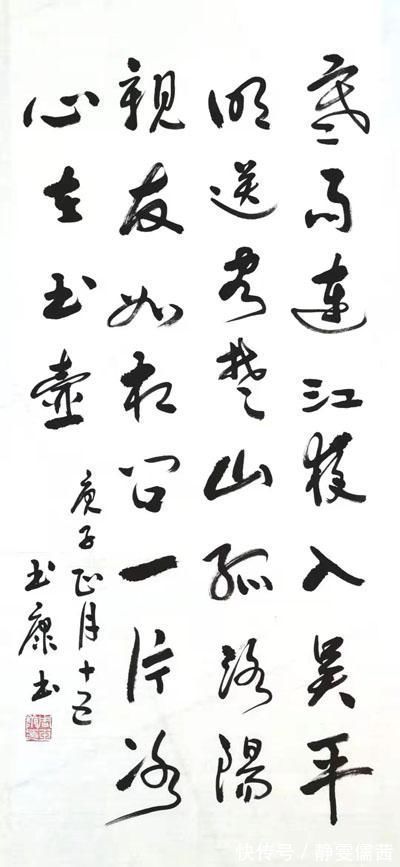 寒雨連江夜入吴平
明送客楚山孤洛陽
親友如相问一片冰
心在玉壺
庚子正月十五
玉康书
快传号 / 静雯儒茜